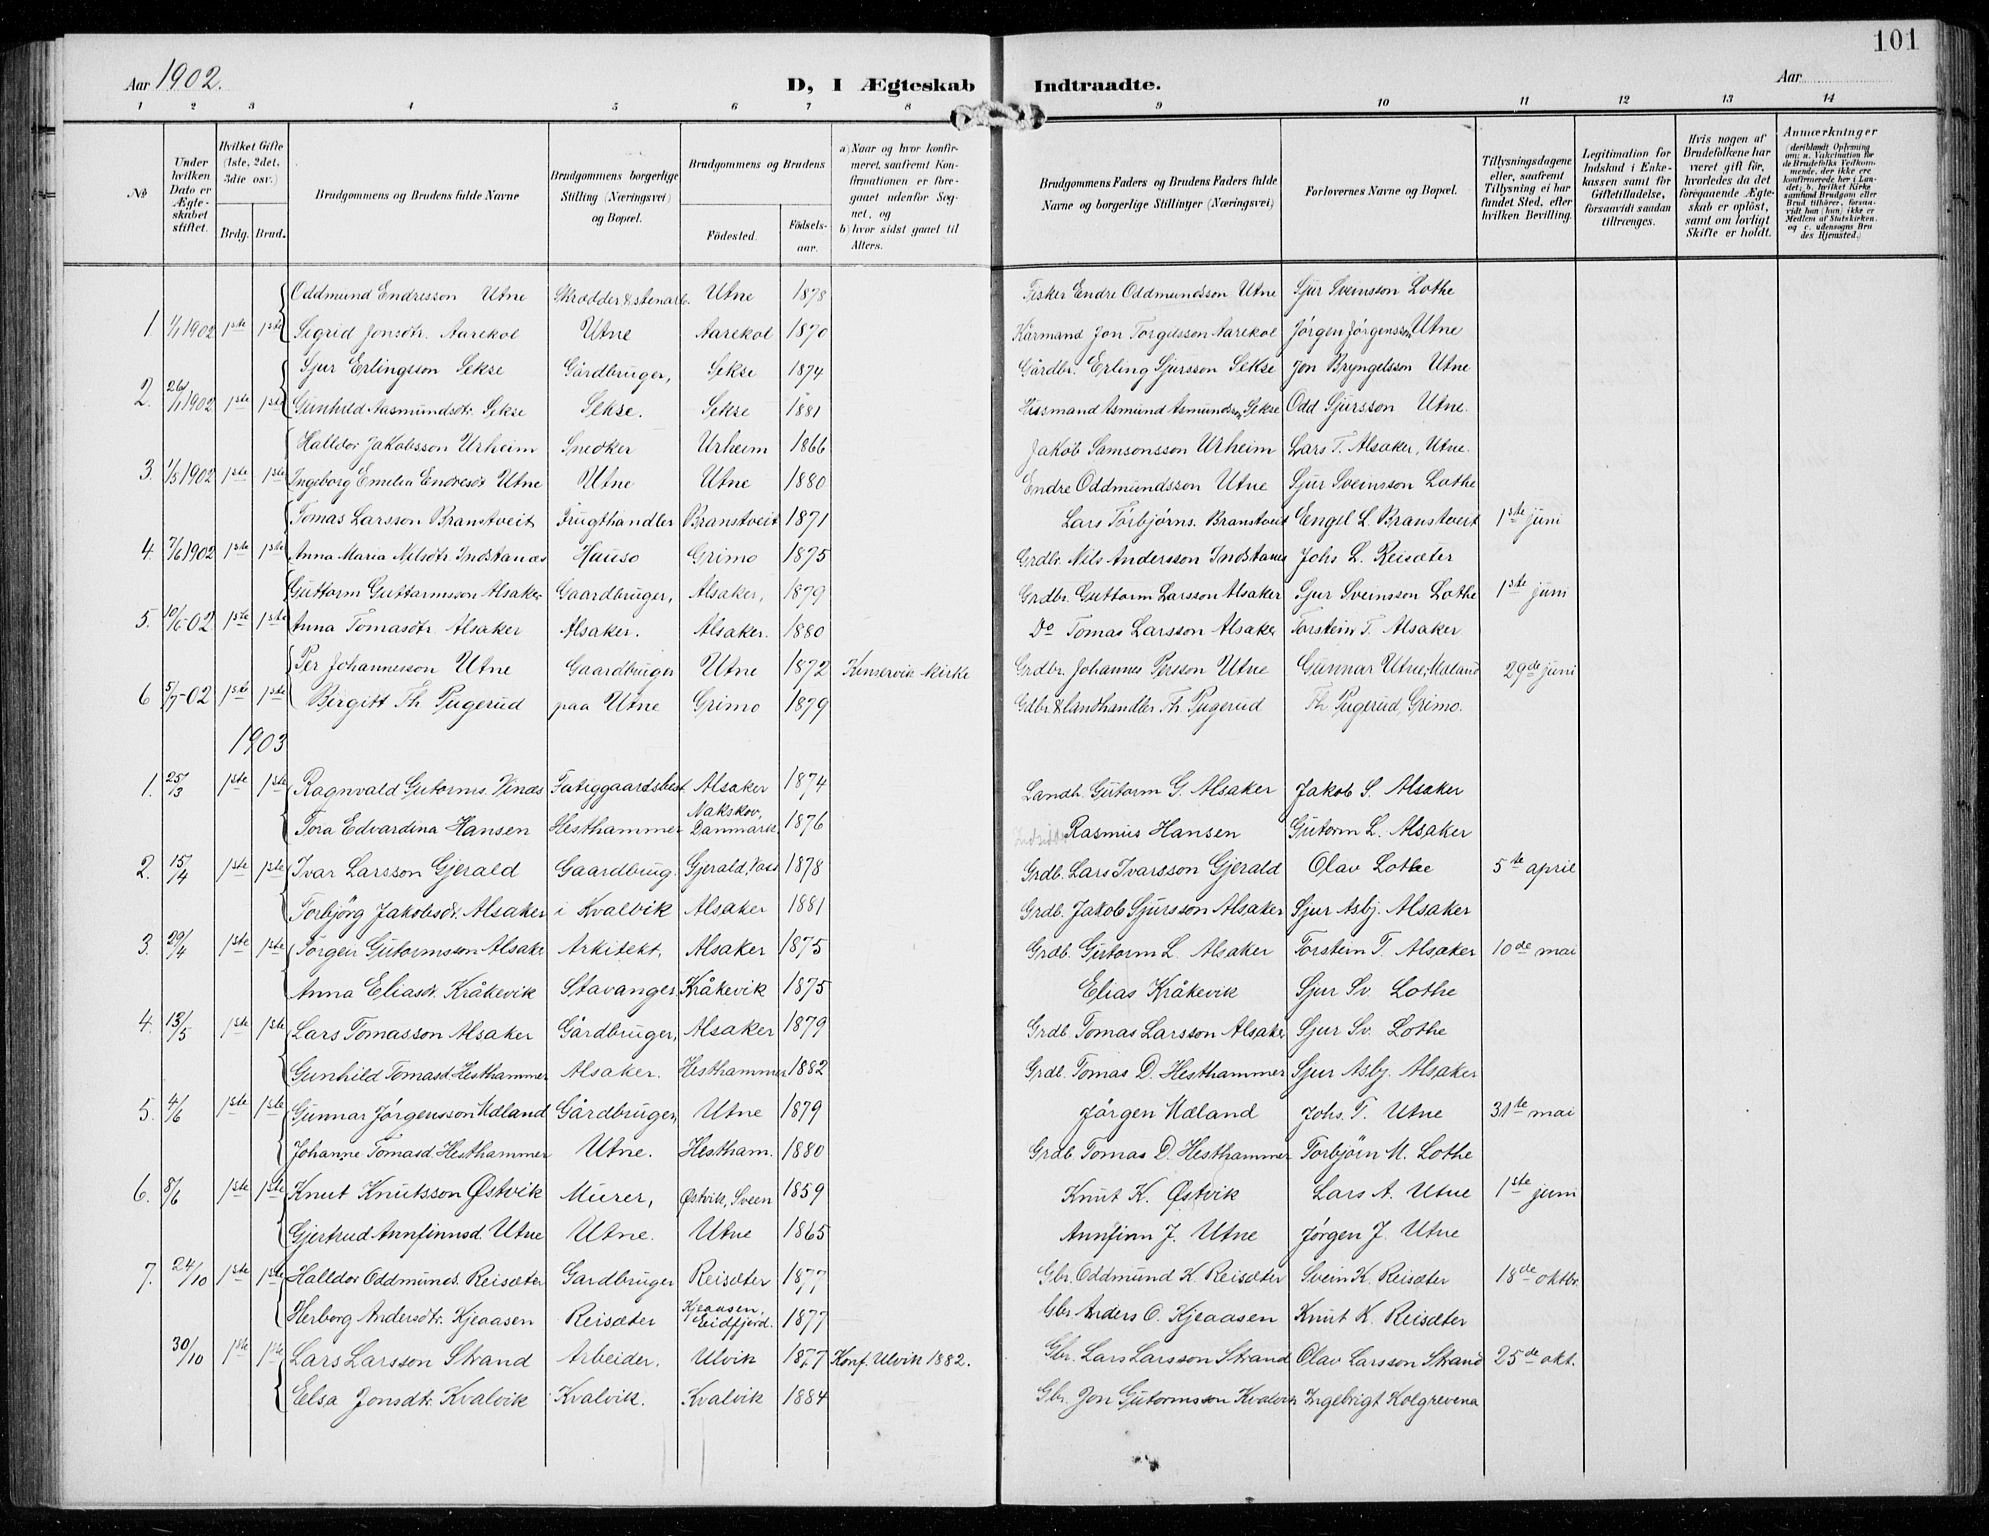 101
Aar 1902. D, I Ægteskab Indtraadte. Aar
1 2 3 4 5 6 7 8 9 10 11 12 13 14
№
Under hvilken Dato er Ægteskabet stiftet.
Hvilket Gifte (1ste, 2det, 3die osv.)
Brdg. Brud.
Brudgommens og Brudens fulde Navne
Brudgommens borgerlige Stilling (Næringsvei) og Bopæl.
Brudgommens og Brudens
Fødested. Fødselsaar.
a) Naar og hvor konfirmeret, saafremt Konfirmationen er foregaaet udenfor Sognet, og
b) hvor sidst gaaet til Alters.
Brudgommens Faders og Brudens Faders fulde Navne og borgerlige Stillinger (Næringsvei)
Forlovernes Navne og Bopæl.
Tillysningsdagene eller, saafremt Tillysning ei har fundet Sted, efter hvilken Bevilling.
Legitimation for Indskud i Enkekassen samt for Giftetilladelse, forsaavidt saadan tiltrænges.
Hvis nogen af Brudefolkene har været gift før, hvorledes da det foregaaende Ægteskab er opløst, samt om lovligt Skifte er holdt.
Anmærkninger (deriblandt Oplysning om: a. Vaccination for de Brudefolks Vedkommende, der ikke ere konfirmerede her i Landet; b. hvilket Kirkesamfund Brudgom eller Brud tilhører, forsaavidt han (hun) ikke er Medlem af Statskirken, og c. udensogns Brudes Hjemsted.)
Oddmund Endresson Utne Skrædder & stenarb. Utne 1878 Fisker Endre Oddmundsson Utne Sjur Sveinsson Lothe
1 1/1 1902 1ste 1ste Segrid Jonsdtr. Aarekol Utne Aarekol 1870 Kårmand Jon Torgilsson Aarekol Jørgen Jørgensson Utne
Sjur Erlingson Sekse Gårdbruger, Sekse 1874 Gårdbr. Erling Sjursson Sekse Jon Bryngelsson Utne
2. 26/1 1902 1ste 1ste Gunhild Aasmundsdtr. Sekse Sekse. Sekse 1881 Husmand Asmund Asmundsson Sekse Odd Sjursson Utne.
Halldor Jakobsson Urheim Snedker Urheim 1866 Jakob Samsonsson Urheim Lars T. Alsaker, Utne.
3. 1/5 1902 1ste 1ste Ingeborg Emelia Endresdt Utne Utne Utne 1880 Endre Oddmundsson Utne Sjur Sveinsson Lothe
Tomas Larsson Branstveit Frugthandler Branstveit 1871 Lars Torbjørns. Branstveit Engel L. Branstveit 1ste juni
4. 7/6 1902 1ste 1ste Anna Maria Nilsdtr Indstanæs Hauso Grimo 1875 Grdbr. Nils Andersson Indstanes Johs L. Reisæter
Guttorm Guttormsson Alsaker Gaardbruger, Alsaker, 1879 Grdbr. Guttorm Larsson Alsaker Sjur Sveinsson Lothe 1ste juni
5. 10/6-02 1ste 1ste Anna Tomasdtr. Alsaker Alsaker. Alsaker. 1880 Do Tomas Larsson Alsaker Torstein T. Alsaker
Per Johannesson Utne Gaardbruger Utne 1872 Kinservik Kirke Grdbr. Johannes Persson Utne Gunnar Utne, Mæland 29de juni
6 5/7-02 1ste 1ste Birgitt Th Pugerud paa Utne Grimo 1879 Gdbr & landhandler Th Pugerud Th Pugerud, Grimo.
1903
1. 25/3 1ste 1ste Ragnvald Gutorms. Vinæs Fatiggaardsbest. Alsaker 1874 Landh. Gutorm G. Alsaker Jakob S. Alsaker
Tora Edvardina Hansen Hesthammer Nakskov, Danmark. 1876 Rasmus Hansen Gutorm L. Alsaker
2. 15/4 1ste 1ste Ivar Larsson Gjerald Gaardbrug. Gjerald, Voss 1878 Grdb. Lars Ivarsson Gjerald Olav Lothe 5te april
Torbjörg Jakobsdr. Alsaker i Kvalvik Alsaker 1881 Grdb. Jakob Sjursson Alsaker Sjur Asbj. Alsaker
3. 29/4 1ste 1ste Torgeir Gutormsson Alsaker Arkitekt, Alsaker 1875 Grdb. Gutorm L. Alsaker Torstein T. Alsaker 10de mai
Anna Eliasdr. Kråkevik Stavanger Kråkevik 1875 Elias Kråkevik Sjur Sv. Lothe
4. 13/5 1ste 1ste Lars Tomasson Alsaker Gårdbruger, Alsaker 1879 Grdb. Tomas Larsson Alsaker Sjur Sv. Lothe
Gunhild Tomasd. Hesthammer Alsaker. Hesthammer 1882 Grdb. Tomas D. Hesthammer Sjur Asbj. Alsaker
5. 4/6 1ste 1ste Gunnar Jørgensson Mæland Gårdbruger, Utne 1879 Jørgen Mæland Johs. T. Utne 31te mai
Johanne Tomasd. Hesthammer Utne. Hestham. 1880 Grdb. Tomas D. Hesthammer Torbjörn M. Lothe
6. 8/6 1ste 1ste Knut Knutsson Østvik Murer, Østvik, Sveen 1859 Knut K. Østvik Lars A. Utne 1ste juni
Gjertrud Annfinnsd. Utne Utne. Utne 1865 Annfinn J. Utne Jørgen J. Utne
7. 24/10 1ste 1ste Halldor Oddmunds. Reisæter Gardbruger Reisæter 1877 Gbr. Oddmund K. Reisæter Svein K. Reisæter 18de oktbr
Herborg Andersdtr. Kjeaasen Reisæter Kjeaasen, Eidfjord. 1877 Gbr. Anders O. Kjeaasen Knut K. Reisæter
30/10 1ste 1ste Lars Larsson Strand Arbeider. Ulvik 1877 Konf. Ulvik 1882. Gbr. Lars Larsson Strand Olav Larsson Strand 25de okt.
Elsa Jonsdtr. Kvalvik Kvalvik. Kvalvik 1884 Gbr. Jon Gutormsson Kvalvik Ingebrigt Kolgrevena